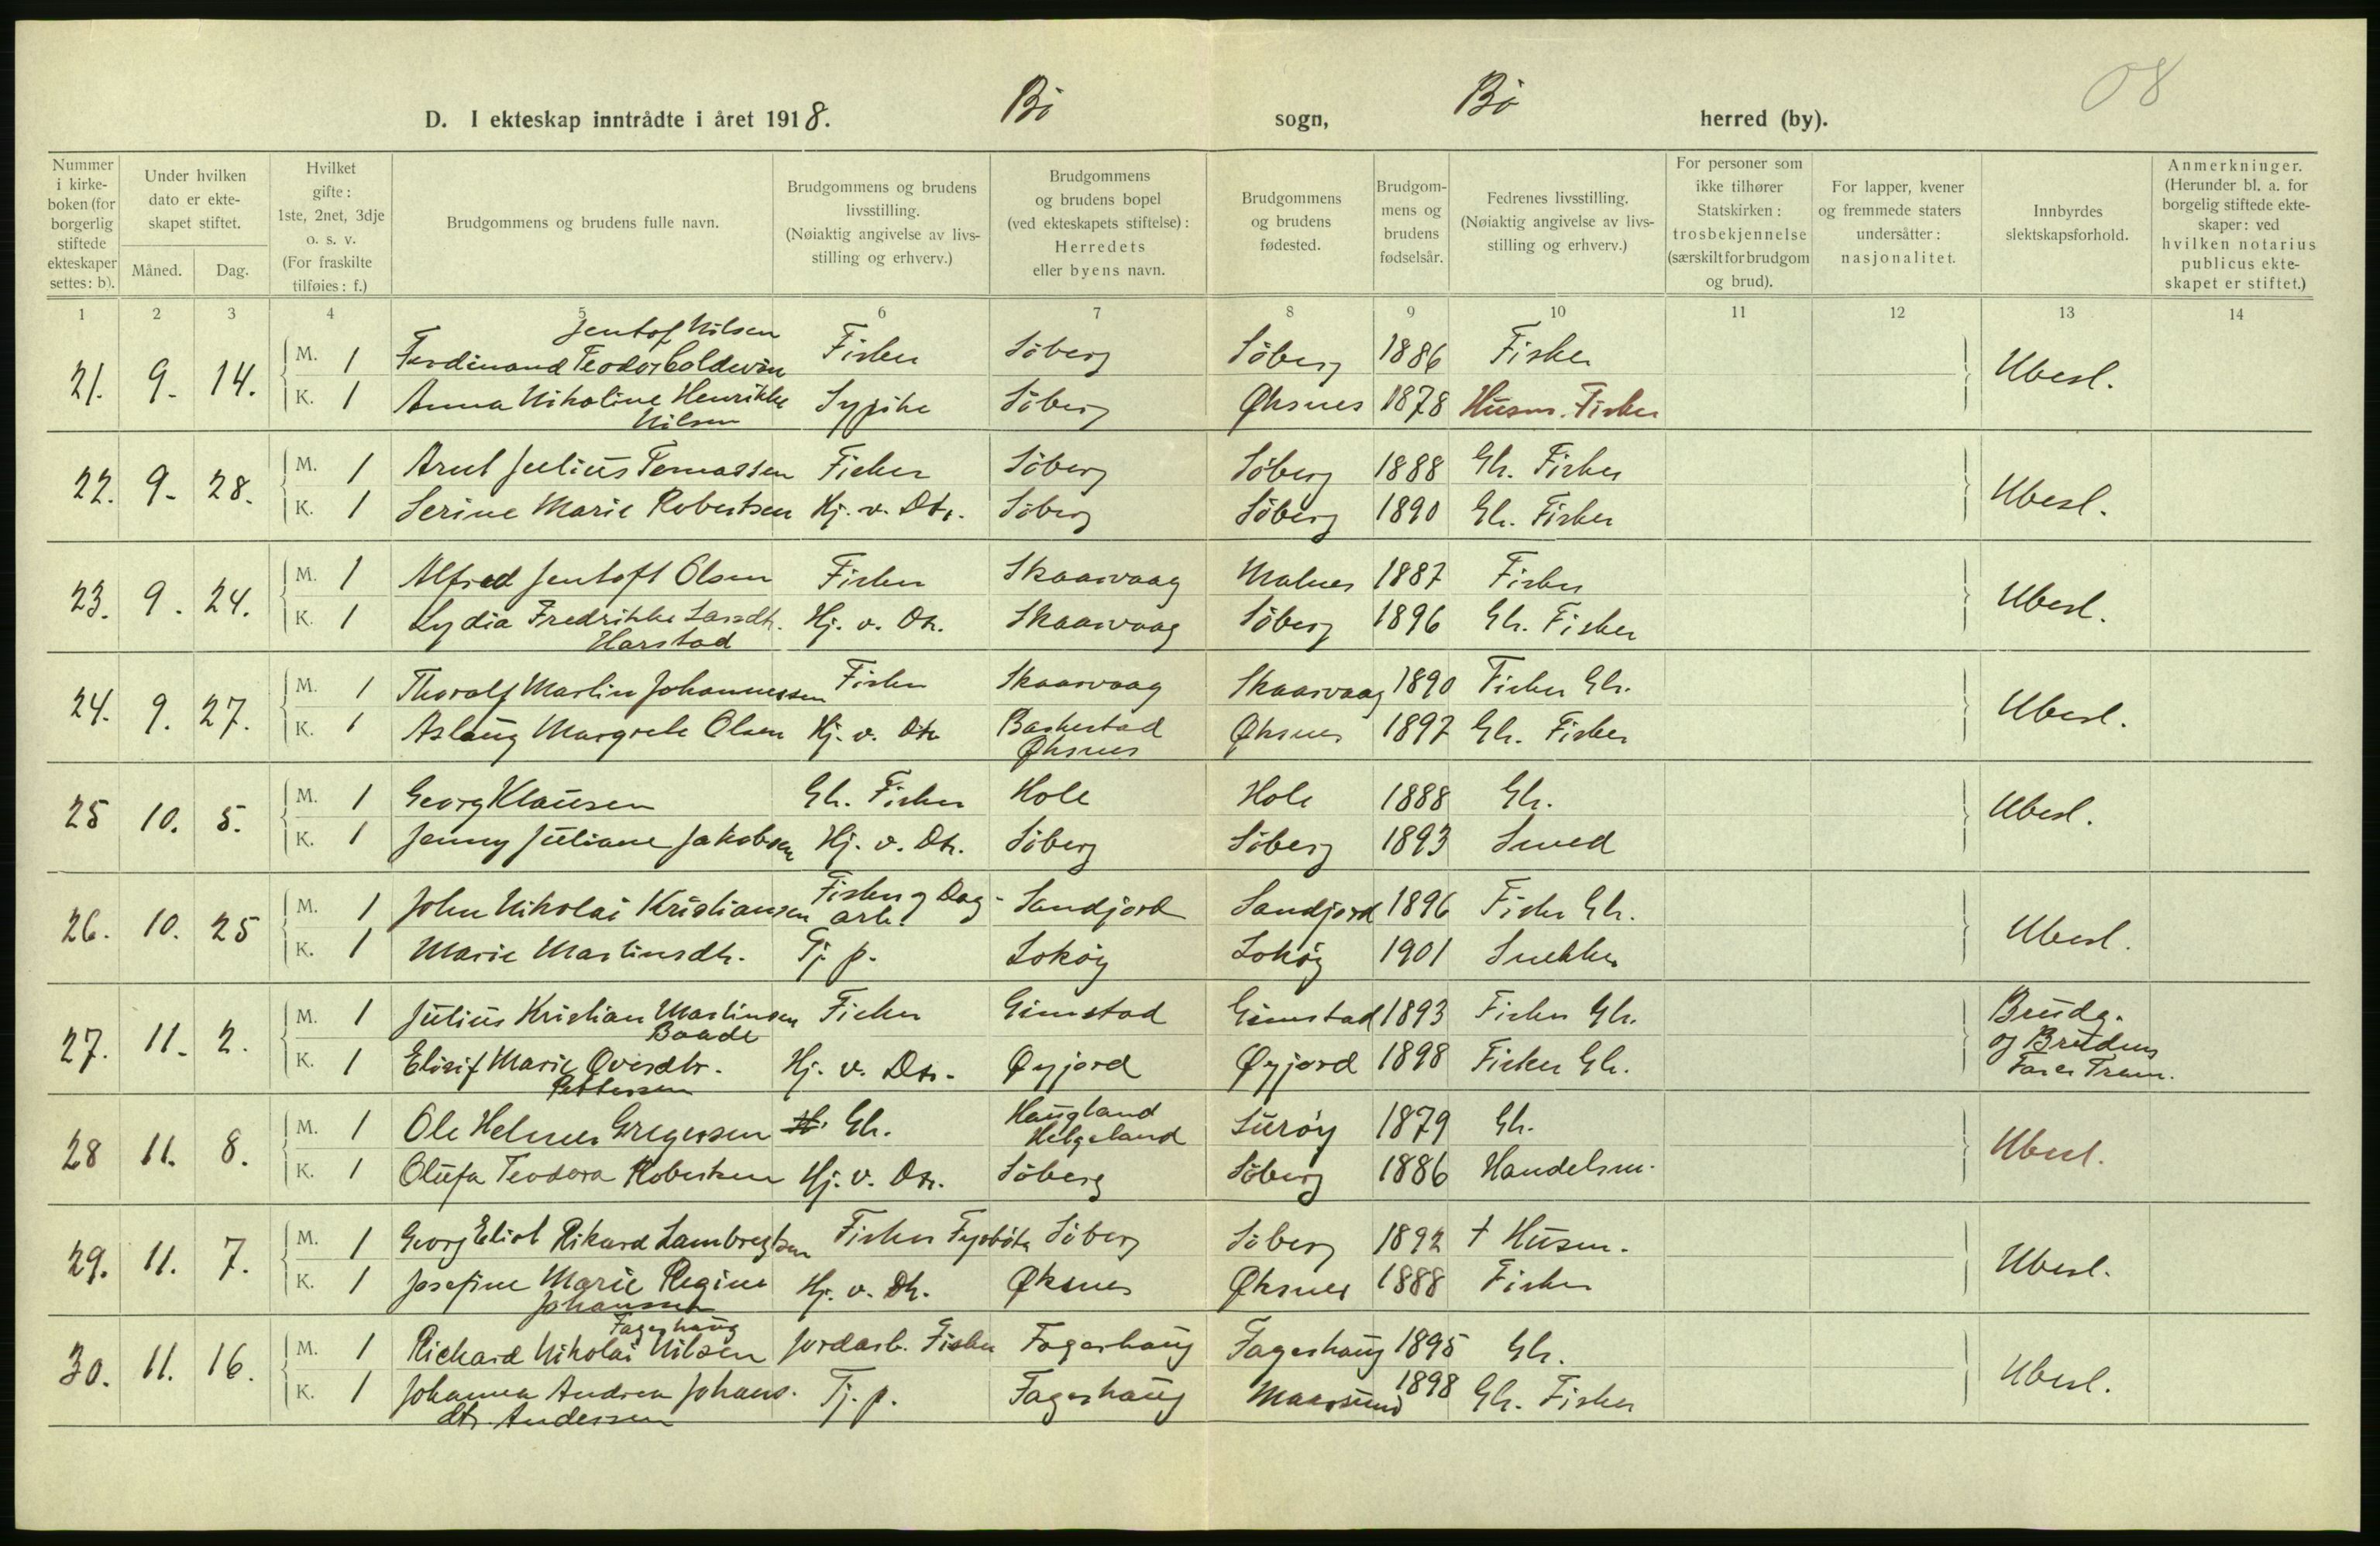 08
D. I ekteskap inntrådte i året 1918. Bö sogn, Bö herred (by).
Nummer i kirkeboken (for borgerlig stiftede ekteskaper settes: b).
Under hvilken dato er ekteskapet stiftet.
Måned. Dag.
Hvilket gifte: 1ste, 2net, 3dje o. s. v. (For fraskilte tilføies: f.)
Brudgommens og brudens fulle navn.
Brudgommens og brudens livsstilling. (Nøiaktig angivelse av livsstilling og erhverv.)
Brudgommens og brudens bopel (ved ekteskapets stiftelse): Herredets eller byens navn.
Brudgommens og brudens fødested.
Brudgommens og brudens fødselsår.
Fedrenes livsstilling. (Nøiaktig angivelse av livsstilling og erhverv.)
For personer som ikke tilhører Statskirken: trosbekjennelse (særskilt for brudgom og brud).
For lapper, kvener og fremmede staters undersåtter: nasjonalitet.
Innbyrdes slektskapsforhold.
Anmerkninger. (Herunder bl. a. for borgelig stiftede ekteskaper: ved hvilken notarius publicus ekteskapet er stiftet.)
1 2 3 4 5 6 7 8 9 10 11 12 13 14
Jentof Nilsen
21. 9. 14. M. 1 Ferdinand Teodor Fisker Söberg Söberg 1886 Fisker Ubesl.
K. 1 Anna Nikoline Henrikke Sypike Söberg Øksnes 1878 Husm. Fisker
Nilsen
22. 9. 28. M. 1 Arnt Julius Tomassen Fisker Söberg Söberg 1888 Gb. Fisker Ubesl.
K. 1 Serine Marie Robertsen Hj. v. Dtr. Söberg Söberg 1890 Gb. Fisker
23. 9. 24. M. 1 Alfred Jentoft Olsen Fisker Skaarvaag Malnes 1887 Fisker Ubesl.
K. 1 Lydia Fredrikke Larsdtr. Hj. v. Dtr. Skaarvaag Söberg 1896 Gb. Fisker
Harstad
24. 9. 27. M. 1 Thoralf Martin Johannessen Fisker Skaarvaag Skaarvaag 1890 Fisker Gb. Ubesl.
K. 1 Aslaug Margrete Olsen Hj. v. Dtr Barkestad Øksnes 1897 Gb. Fisker
Øksnes
25 10. 5. M. 1 Georg Klausen Gb. Fisker Hole Hole 1888 Gb. Ubesl.
K. 1 Jenny Juliane Jakobsen Hj. v. Dtr. Söberg Söberg 1893 Smed
26. 10. 25 M. 1 John Nikolai Kristiansen Fisker og Dag- Sandjord Sandjord 1896 Fisker Gb. Ubesl.
arb.
K. 1 Marie Martinsdtr. Tj. p. Lokøy Lokøy 1901 Snekker
27. 11. 2. M. 1 Julius Kristian Martinsen Fisker Gimstad Gimstad 1893 Fisker Gb. Brudg.
Baade og Brudens
K. 1 Elisif Marie Ovesdtr. Hj. v. Dtr. Øyjord Øyjord 1898 Fisker Gb. Far er Frem.
Pettersen
28 11. 8. M. 1 Ole Helmer Gregersen Gb. Haugland Suröy 1879 Gb. Ubesl.
Helgeland
K. 1 Olufa Teodora Robertsen Hj. v. Dtr. Söberg Söberg 1886 Handelsm.
29. 11. 7. M. 1 Georg Eliot Rikard Lambregtsen Fisker Fyrböter Söberg Söberg 1892 † Husm. Ubesl.
K. 1 Josefine Marie Regine Hj. v. Dtr. Øksnes Øksnes 1888 Fisker
Johansen
Fagerhaug
30. 11. 16. M. 1 Richard Nikolai Nilsen Jordarb. Fisker Fagerhaug Fagerhaug 1895 Gb. Ubesl.
K. 1 Johanna Andrea Johans. Tj. p. Fagerhaug Maarsund 1898 Gb. Fisker
dtr. Andersen